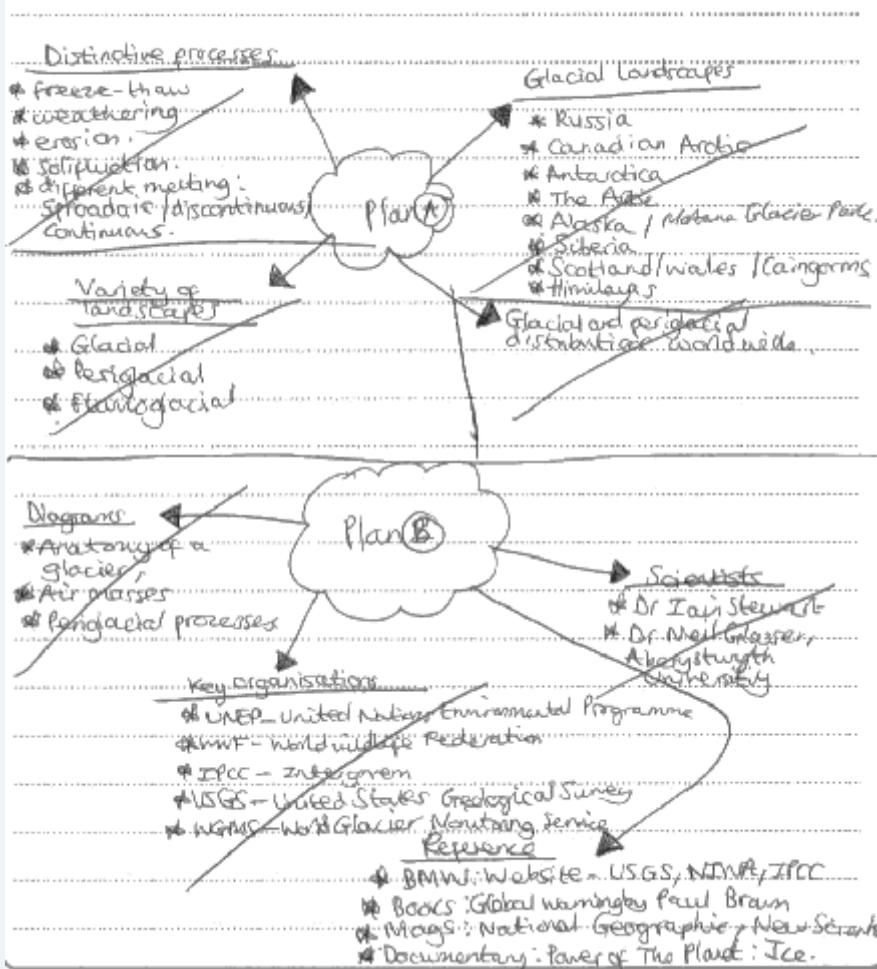 Distinctive processes
* freeze-thaw
* weathering
* erosion.
* solifluction.
* different melting:
Sproadaic/discontinuous/
continuous.
Glacial Landscapes
* Russia
* Canadian Arctic
* Antarctica
* The Arctic
* Alaska / Motana Glacier Park.
* Siberia
* Scotland/wales/Cairngorms
* Himilayas
Plan A
Variety of
landscapes
* Glacial
* Periglacial
* Fluvioglacial
Glacial and periglacial
distribution worldwide.
Plan B
Diagrams
* Anatomy of a
glacier,
* Air masses
* Periglacial processes
Scientists
* Dr Iain Stewart
* Dr Neil Glasser,
Aberystwyth
University
Key organisations
* UNEP - United Nations Environmental Programme
* WWF - World wildlife Federation
* IPCC - Intergovern
* USGS - United States Geological Survey
* WGMS - World Glacier Monitoring Service
Reference
* BMW: Website - USGS, NIWA, IPCC
* Books: Global warming by Paul
* Mags: National Geographic, New Scient
* Documentary: Power of The Planet: Ice.